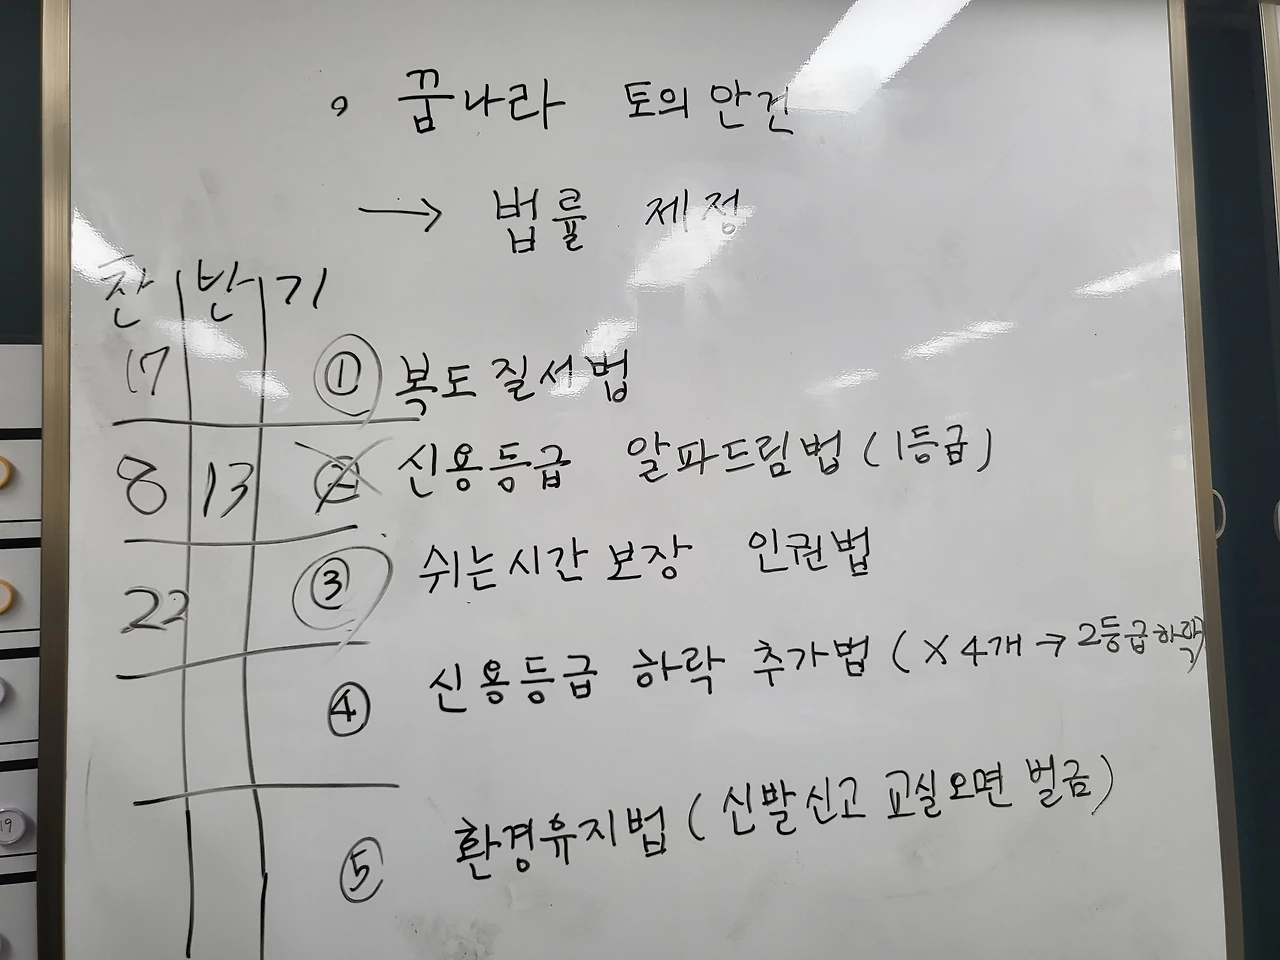 꿈나라 토의 안건
→ 법률 제정
찬 반 기
17 ① 복도 질서 법
8 13 ② 신용등급 알파드림법 (1등급)
22 ③ 쉬는시간 보장 인권법
④ 신용등급 하락 추가법 (X 4개 → 2등급하락)
⑤ 환경유지법 (신발신고 교실오면 벌금)
19